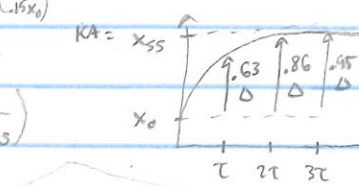 .15x₀)
KA = x_SS
.63 .86 .95
Δ Δ Δ
x₀
s)
τ 2τ 3τ